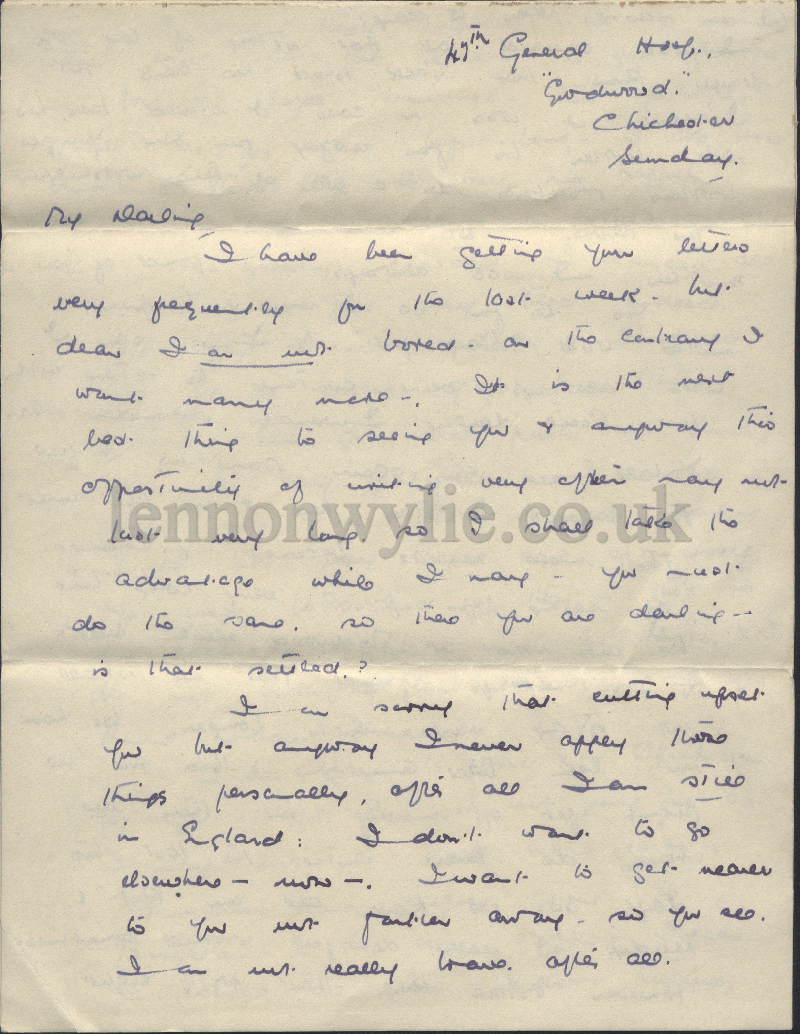 47th General Hosp.,
"Goodwood."
Chichester
Sunday.
My Darling,
I have been getting your letters
very frequently for the last week - but
dear I am not bored - on the contrary I
want many more -. It is the next
best thing to seeing you & anyway this
opportunity of writing very often may not
last very long. so I shall take the
advantage while I may - you must
do the same. so there you are darling -
is that settled.?
I am sorry that cutting upset
you but anyway I never apply those
things personally, after all I am still
in England: I don't want to go
elsewhere - now -. I want to get nearer
to you not farther away - so you see.
I am not really brave after all.
lennonwylie.co.uk